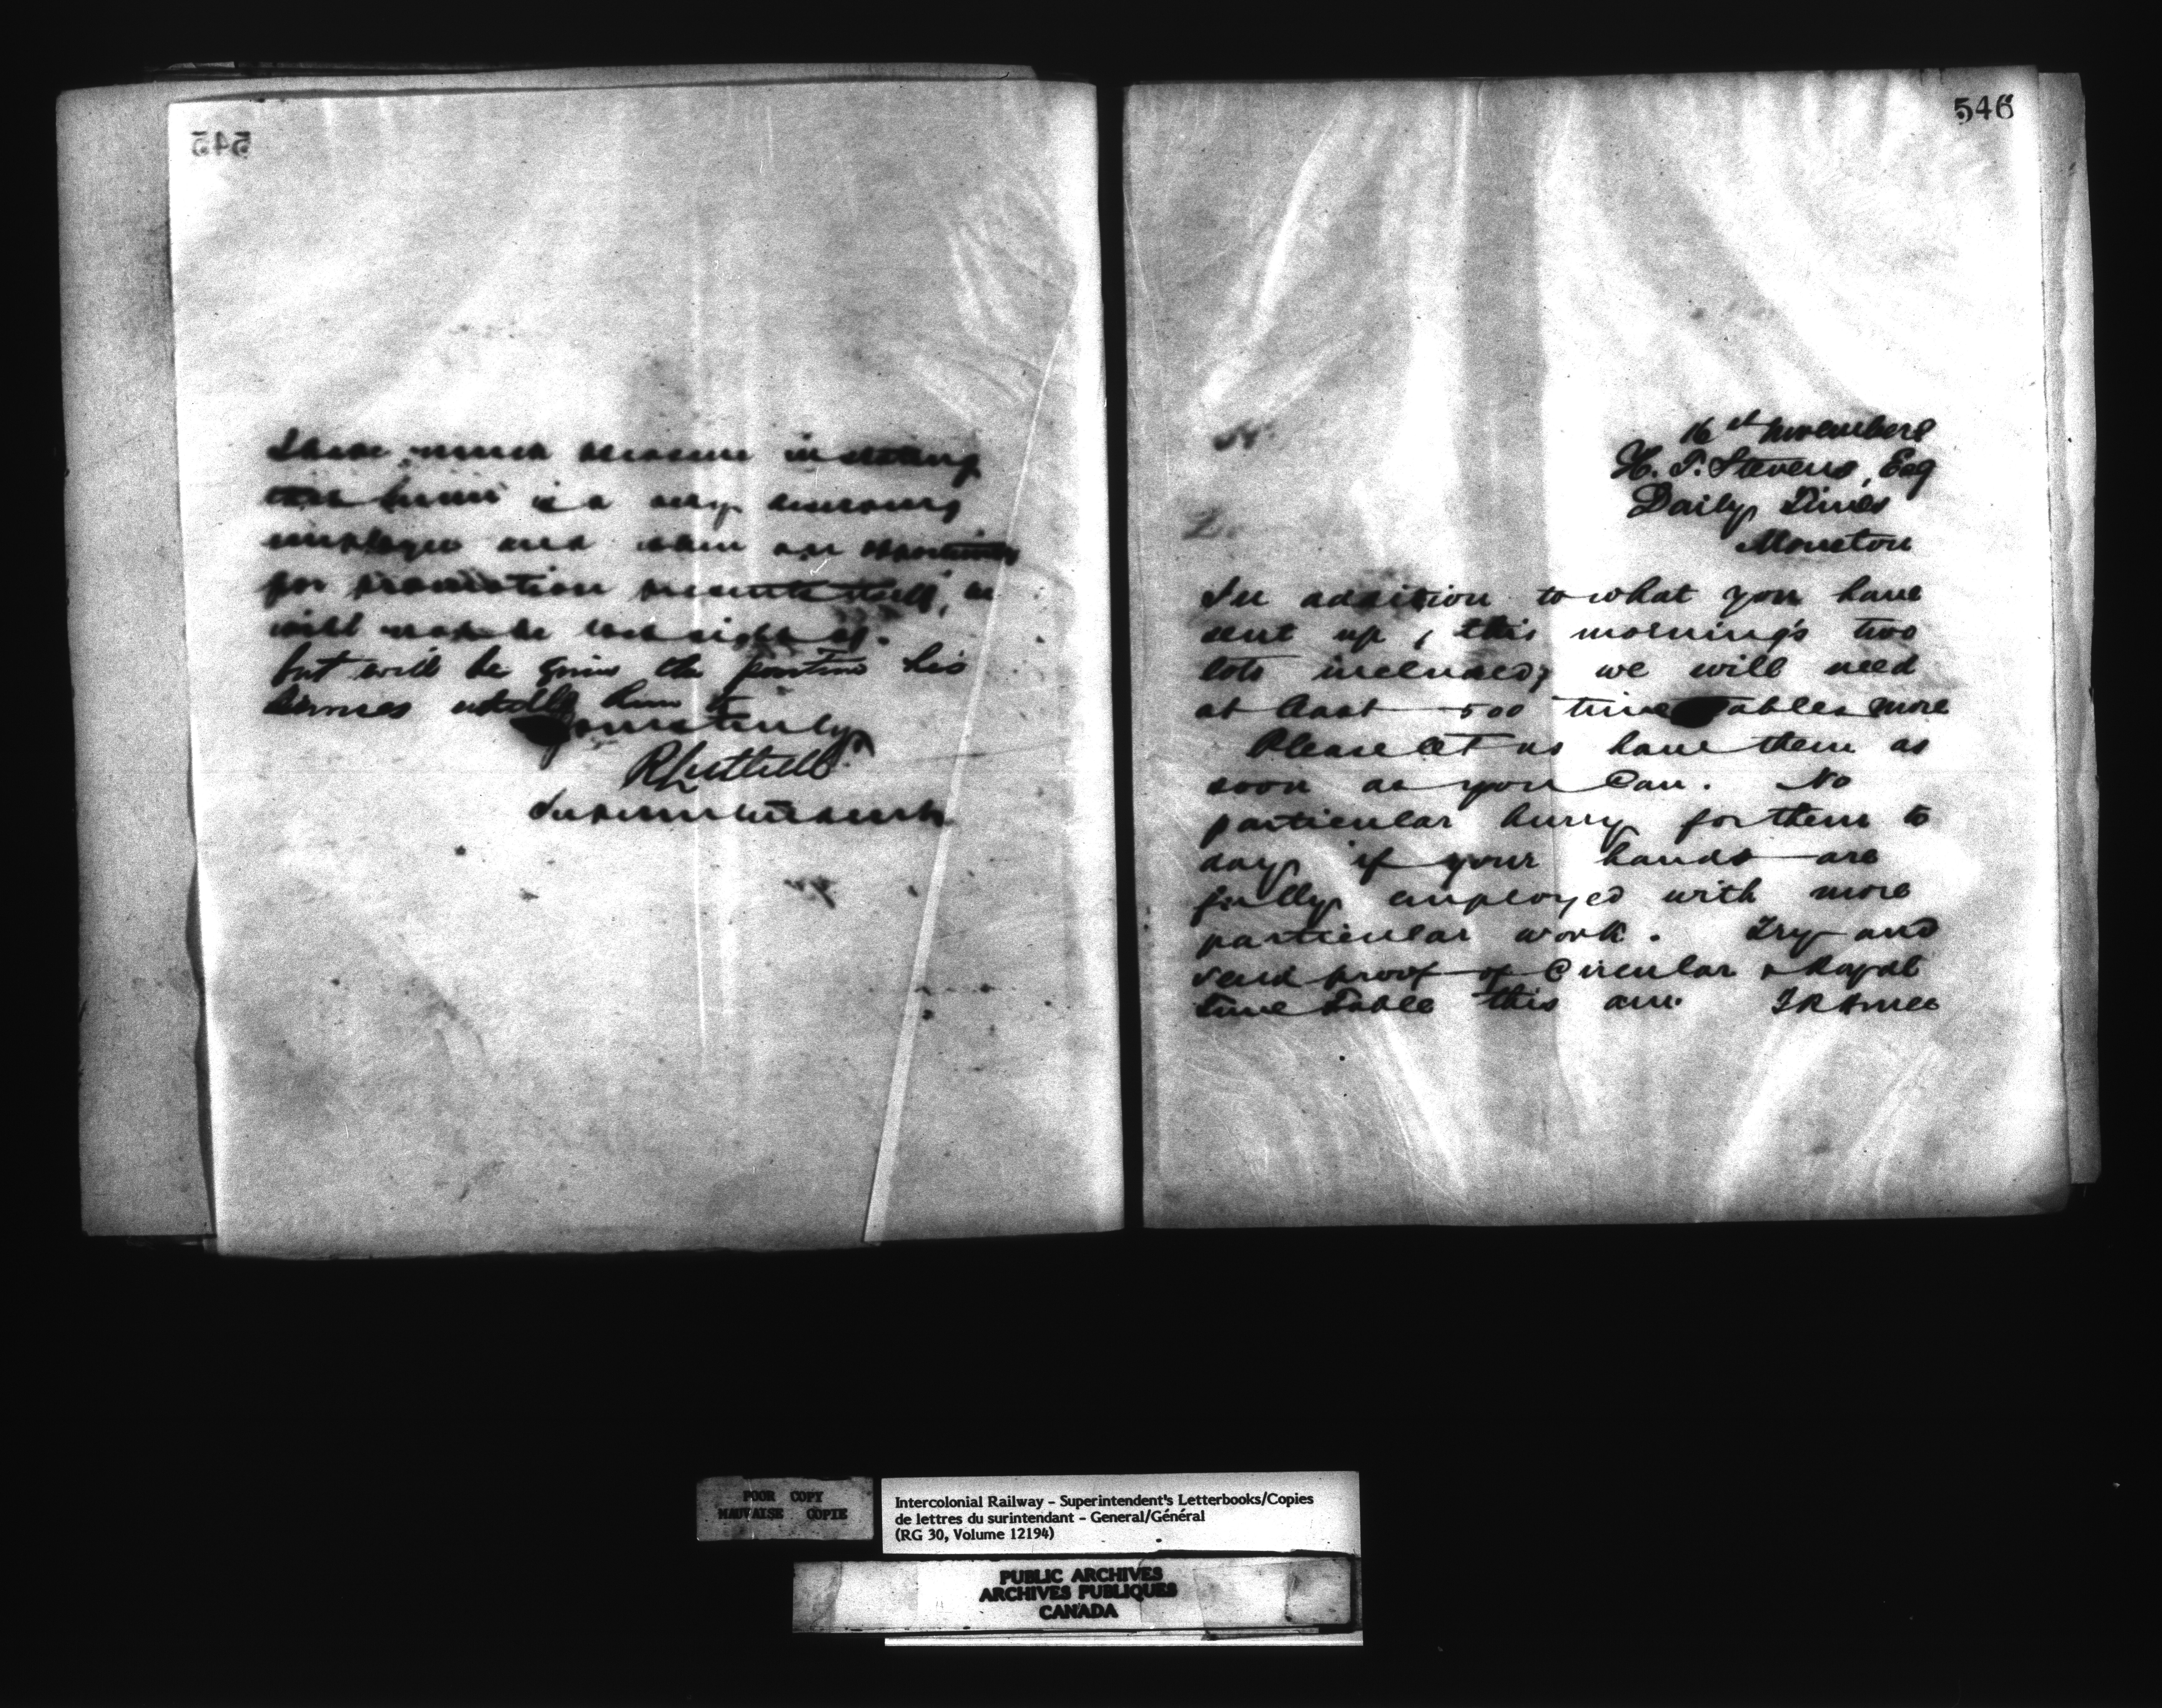 545
I have much pleasure in stating
that he is a very deserving
employee and when an opportunity
for promotion presents itself, he
will not be lost sight of.
but will be given the position his
services entitle him to
Yours truly
R Luttrell
Superintendent
546
16th November
H. T. Stevens, Esq
Daily Times
Moncton
In addition to what you have
sent up, this morning's two
lots included, we will need
at least 500 time tables more
Please let us have them as
soon as you can. No
particular hurry for them to
day if your hands are
fully employed with more
particular work. Try and
send proof of Circular &
time table this am.
POOR COPY
MAUVAISE COPIE
Intercolonial Railway - Superintendent's Letterbooks/Copies
de lettres du surintendant - General/Général
(RG 30, Volume 12194)
PUBLIC ARCHIVES
ARCHIVES PUBLIQUES
CANADA